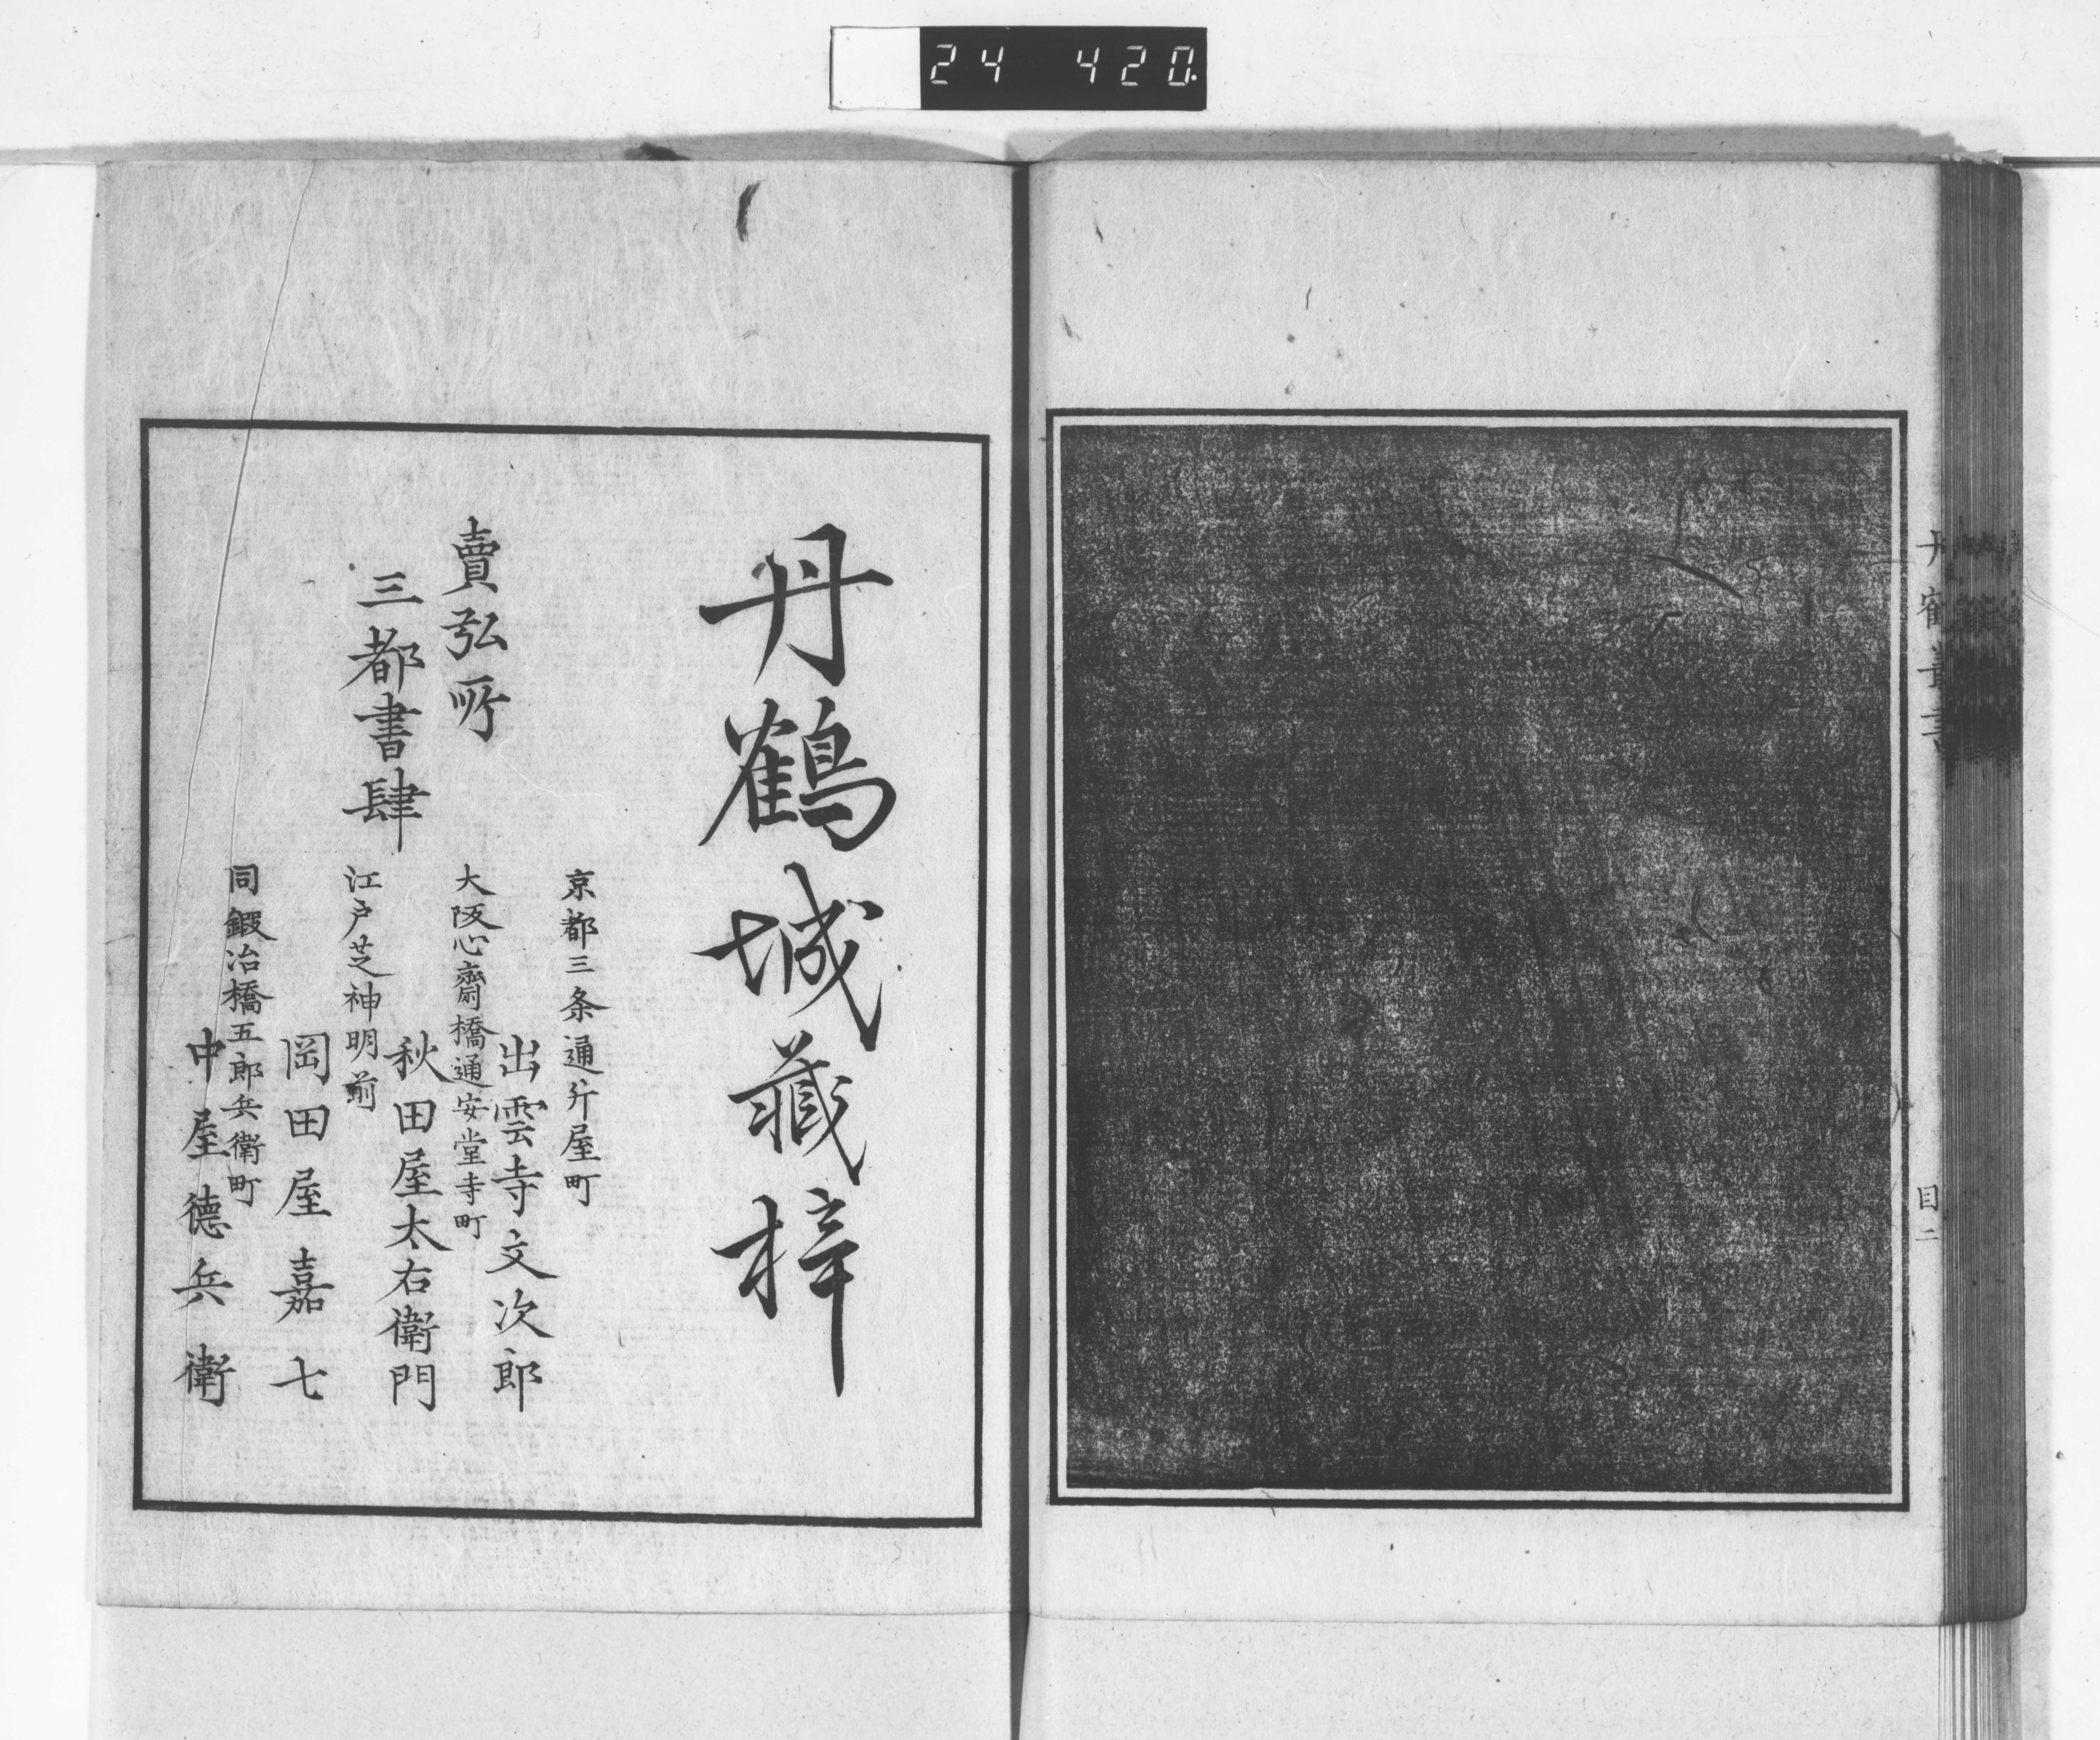 24 420.
丹鶴叢書
目二
丹鶴城蔵梓
賣弘所
三都書肆
京都三条通升屋町
出雲寺文次郎
大阪心齋橋通安堂寺町
秋田屋太右衛門
江戸芝神明前
岡田屋嘉七
同鍜冶橋五郎兵衛町
中屋德兵衛